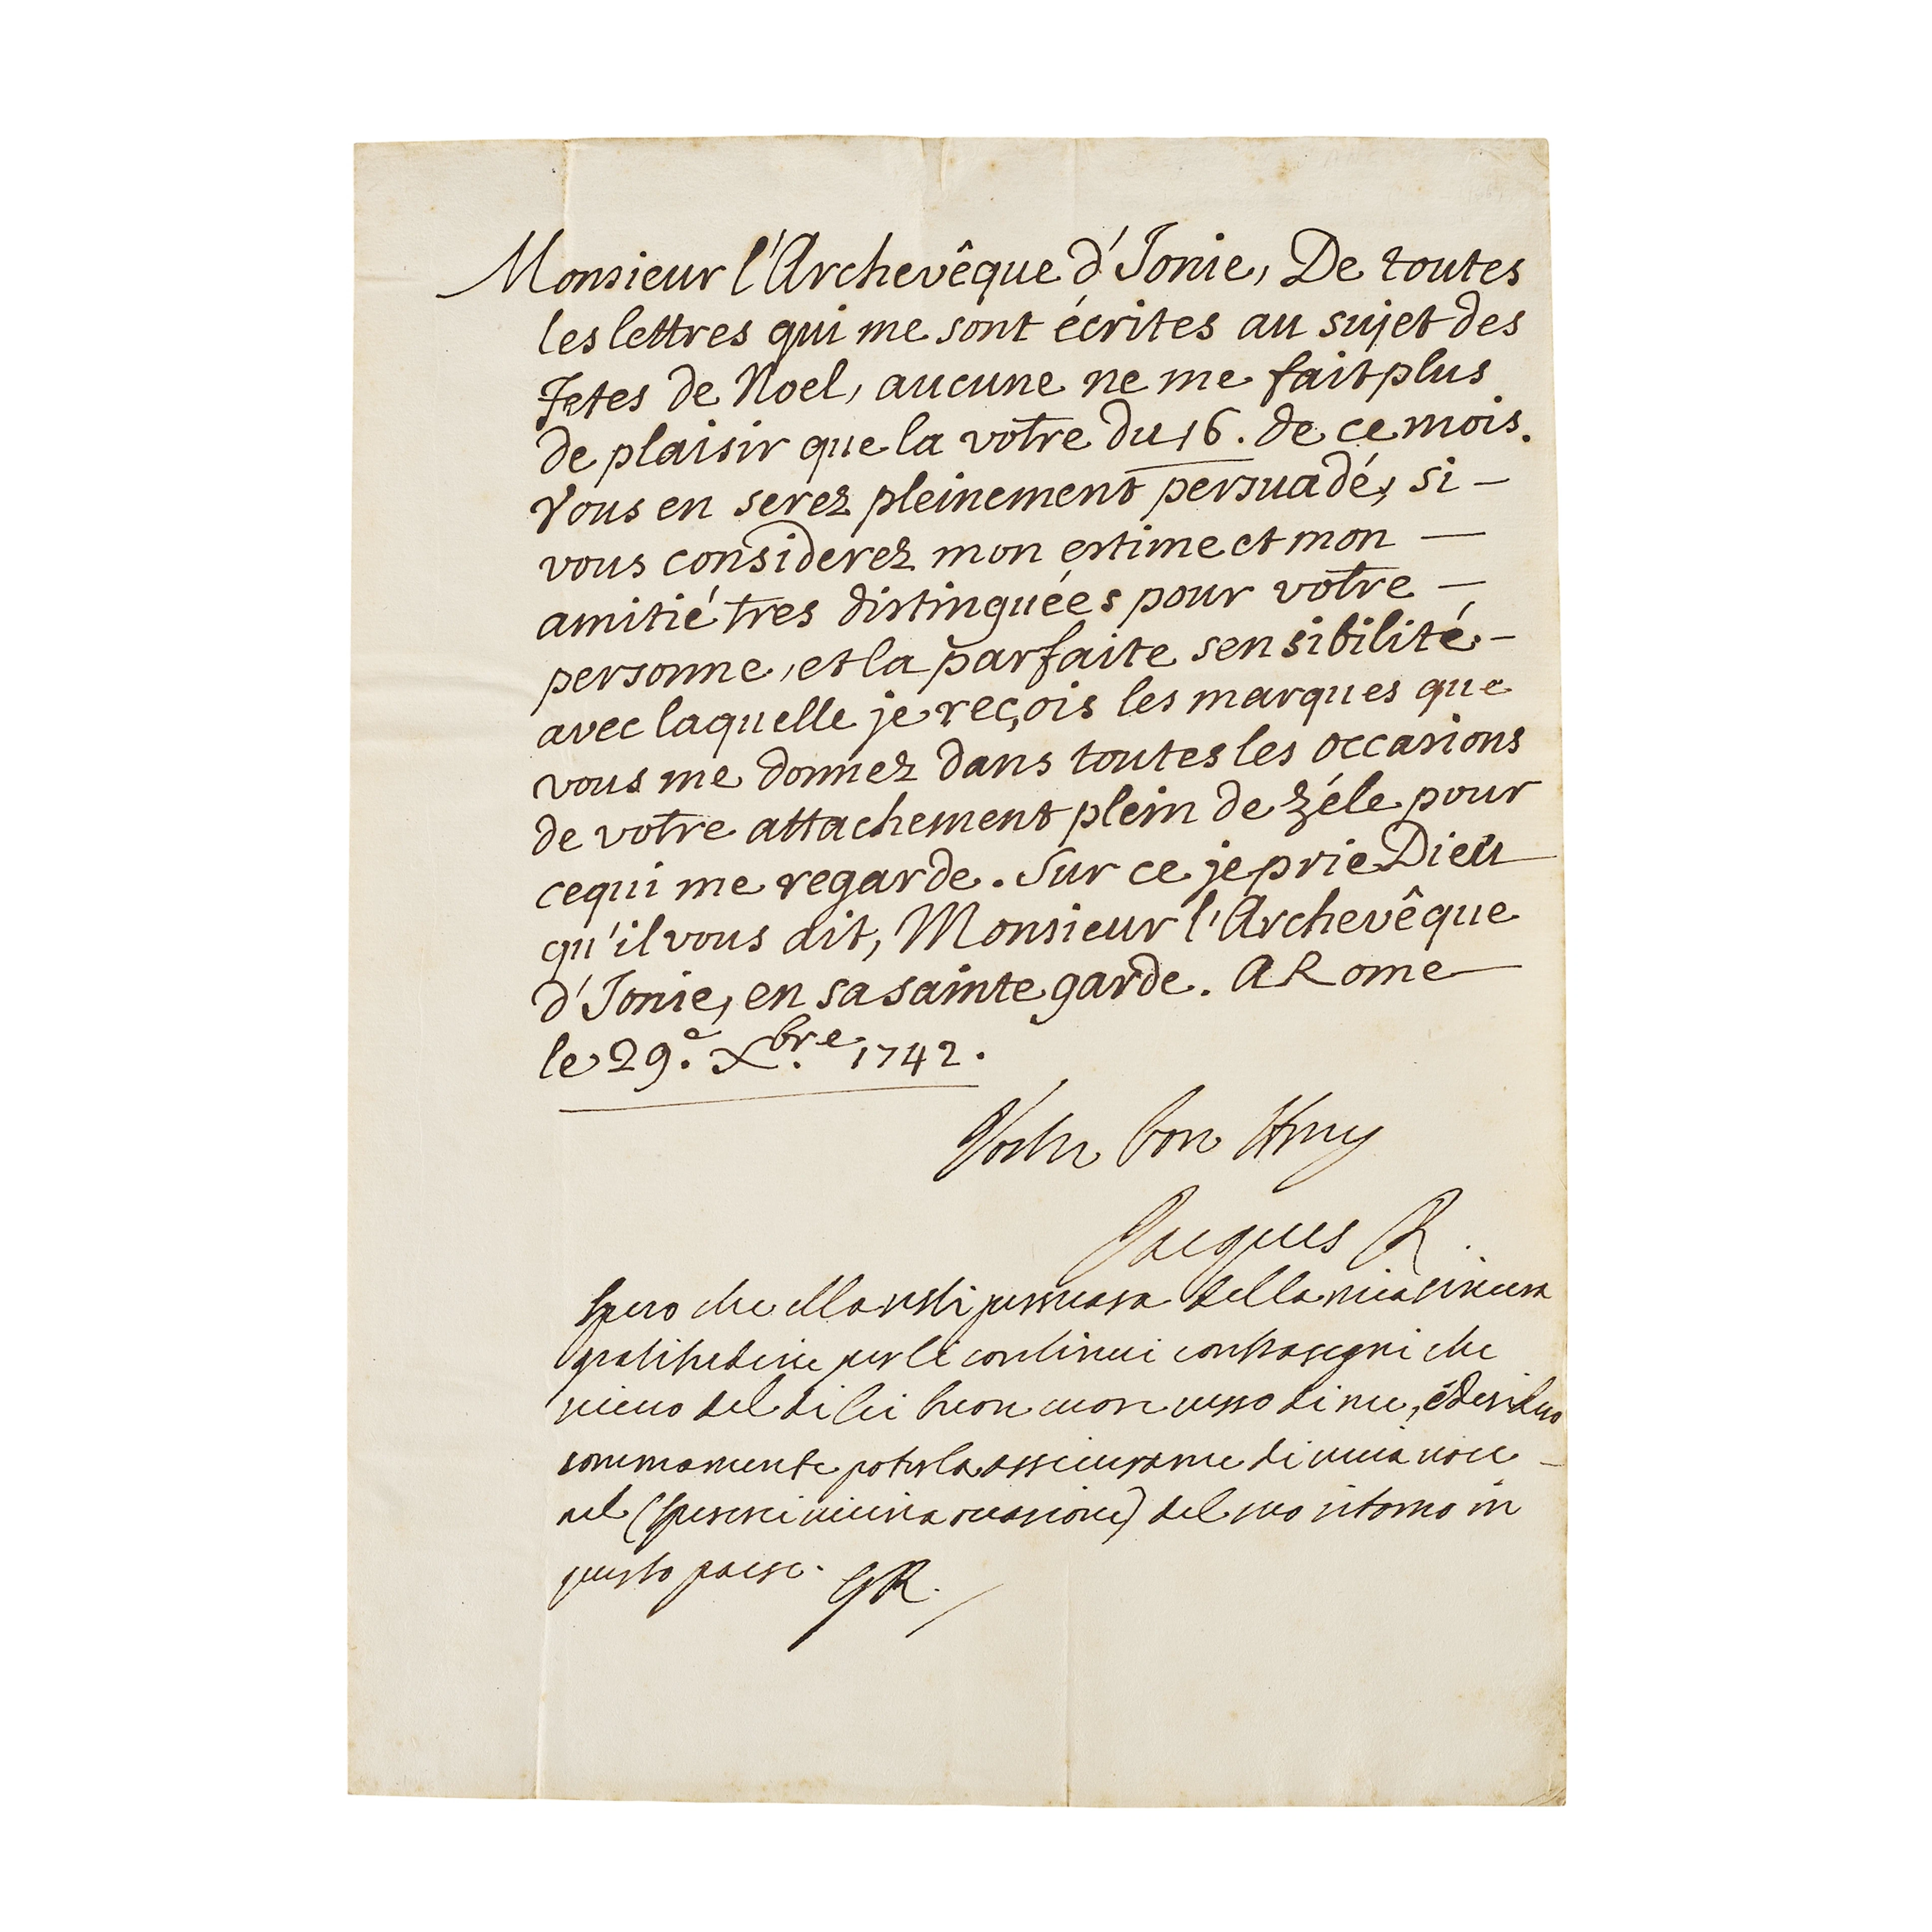 Monsieur l'Archevêque d'Ionie, De toutes
les lettres qui me sont écrites au sujet des
Fetes de Noel, aucune ne me fait plus
de plaisir que la votre du 16. de ce mois.
Vous en serez pleinement persuadé, si –
vous considerez mon estime et mon —
amitié tres distinguées pour votre —
personne, et la parfaite sensibilité –
avec laquelle je reçois les marques que
vous me donnez dans toutes les occasions
de votre attachement plein de zéle pour
ce qui me regarde. Sur ce je prie Dieu
qu'il vous ait, Monsieur l'Archevêque
d'Ionie, en sa sainte garde. A Rome
le 29.e Xbre. 1742.
Votre bon Amy
Jacques R.
Spero che ella resti persuasa della mia sincera
gratitudine per li continui contrasegni che
ricevo del di lei buon cuore verso di me, e desidero
sommamente poterla assicurarne di viva voce –
nel del suo ritorno in
questo paese. GR.